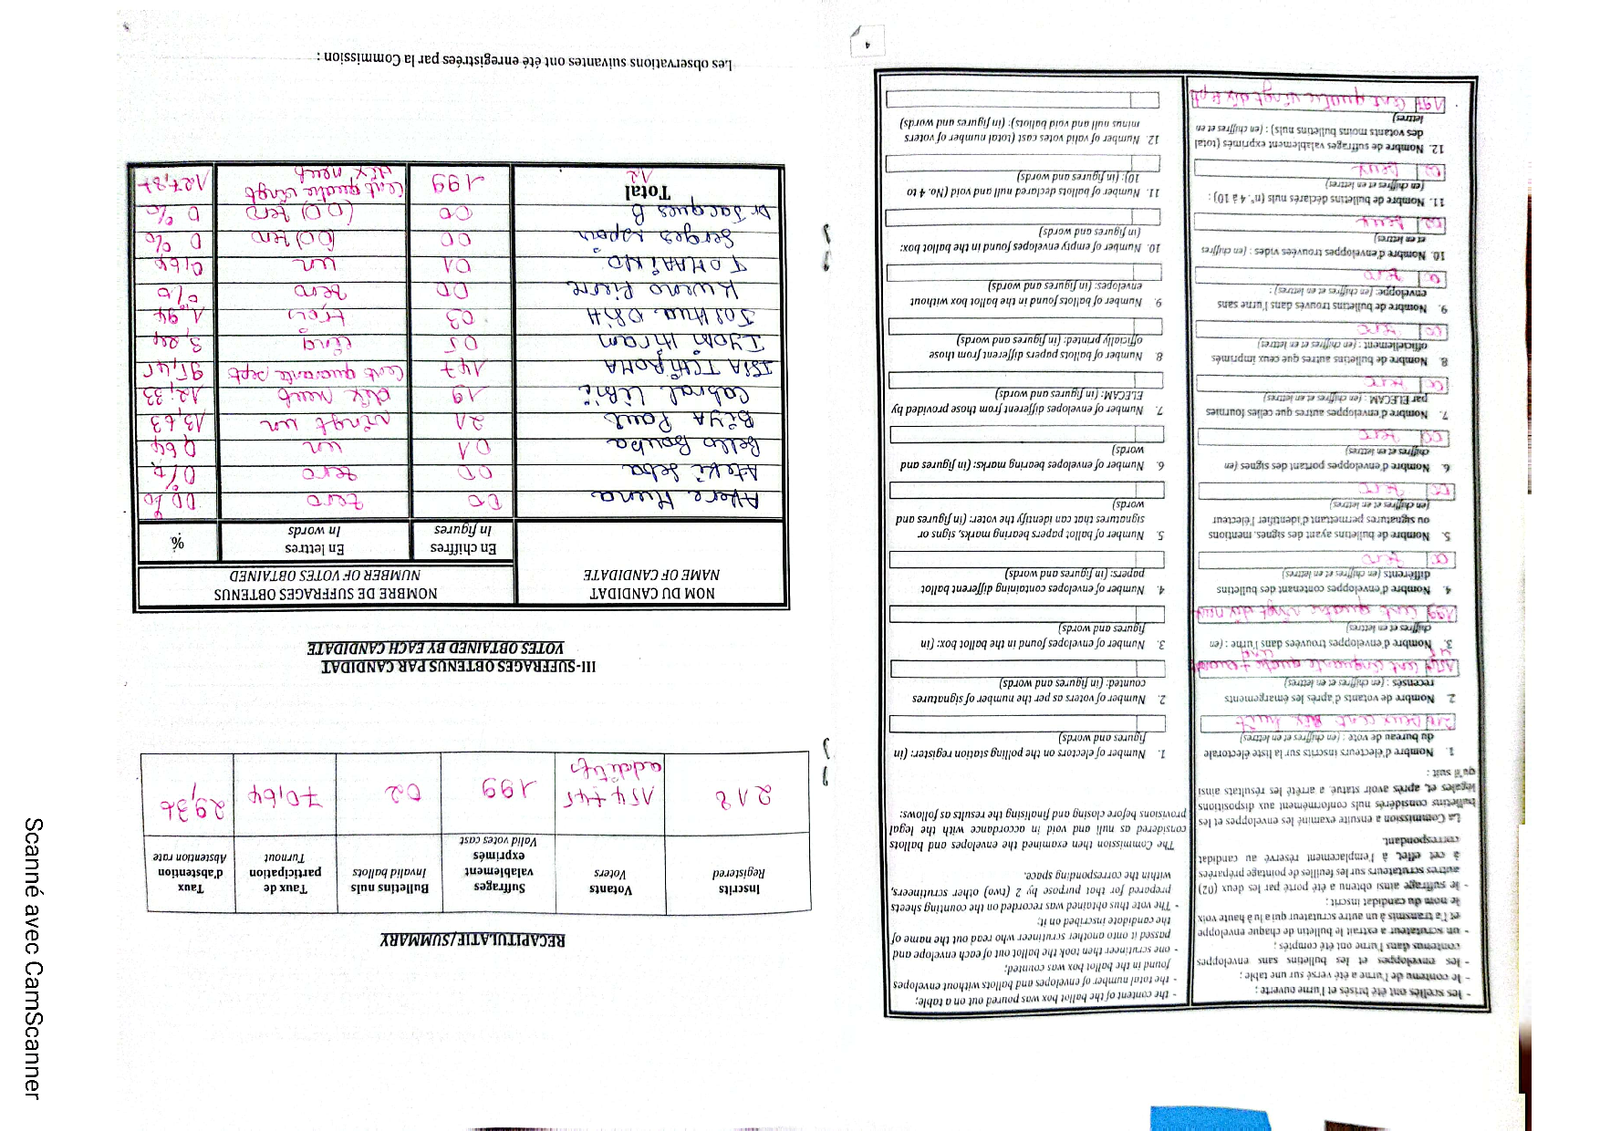 - les scellés ont été brisés et l'urne ouverte ;
- le contenu de l'urne a été versé sur une table ;
- les enveloppes et les bulletins sans enveloppes
contenus dans l'urne ont été comptés ;
- un scrutateur a extrait le bulletin de chaque enveloppe
et l'a transmis à un autre scrutateur qui a lu à haute voix
le nom du candidat inscrit ;
- le suffrage ainsi obtenu a été porté par les deux (02)
autres scrutateurs sur les feuilles de pointage préparées
à cet effet, à l'emplacement réservé au candidat
correspondant.
La Commission a ensuite examiné les enveloppes et les
bulletins considérés nuls conformément aux dispositions
légales et, après avoir statué, a arrêté les résultats ainsi
qu'il suit :
1. Nombre d'électeurs inscrits sur la liste électorale
du bureau de vote : (en chiffres et en lettres)
218 Deux cent dix huit
2. Nombre de votants d'après les émargements
recensés : (en chiffres et en lettres)
154 Cent cinquante quatre +
3. Nombre d'enveloppes trouvées dans l'urne : (en
chiffres et en lettres)
199 Cent quatre vingt dix neuf
4. Nombre d'enveloppes contenant des bulletins
différents (en chiffres et en lettres)
00 zero
5. Nombre de bulletins ayant des signes, mentions
ou signatures permettant d'identifier l'électeur
(en chiffres et en lettres)
00 zero
6. Nombre d'enveloppes portant des signes (en
chiffres et en lettres)
00 zero
7. Nombre d'enveloppes autres que celles fournies
par ELECAM : (en chiffres et en lettres)
00 zero
8. Nombre de bulletins autres que ceux imprimés
officiellement : (en chiffres et en lettres)
00 zero
9. Nombre de bulletins trouvés dans l'urne sans
enveloppe: (en chiffres et en lettres) :
00 zero
10. Nombre d'enveloppes trouvées vides : (en chiffres
et en lettres)
02 Deux
11. Nombre de bulletins déclarés nuls (n°. 4 à 10) :
(en chiffres et en lettres)
02 Deux
12. Nombre de suffrages valablement exprimés (total
des votants moins bulletins nuls) : (en chiffres et en
lettres)
197 Cent quatre vingt dix sept
- the content of the ballot box was poured out on a table;
- the total number of envelopes and ballots without envelopes
found in the ballot box was counted;
- one scrutineer then took the ballot out of each envelope and
passed it onto another scrutineer who read out the name of
the candidate inscribed on it;
- The vote thus obtained was recorded on the counting sheets
prepared for that purpose by 2 (two) other scrutineers,
within the corresponding space.
The Commission then examined the envelopes and ballots
considered as null and void in accordance with the legal
provisions before closing and finalising the results as follows:
1. Number of electors on the polling station register: (in
figures and words)
2. Number of voters as per the number of signatures
counted: (in figures and words)
3. Number of envelopes found in the ballot box: (in
figures and words)
4. Number of envelopes containing different ballot
papers: (in figures and words)
5. Number of ballot papers bearing marks, signs or
signatures that can identify the voter: (in figures and
words
6. Number of envelopes bearing marks: (in figures and
words
7. Number of envelopes different from those provided by
ELECAM: (in figures and words)
8. Number of ballots papers different from those
officially printed: (in figures and words)
9. Number of ballots found in the ballot box without
envelopes: (in figures and words)
10. Number of empty envelopes found in the ballot box:
(in figures and words)
11. Number of ballots declared null and void (No. 4 to
10): (in figures and words)
12. Number of valid votes cast (total number of voters
minus null and void ballots): (in figures and words)
4
RECAPITULATIF/SUMMARY
Inscrits Registered Votants Voters Suffrages valablement exprimés Valid votes cast Bulletins nuls Invalid ballots Taux de participation Turnout Taux d'abstention Abstention rate
218 154 +45 additifs 199 02 70,64 29,36
III-SUFFRAGES OBTENUS PAR CANDIDAT
VOTES OBTAINED BY EACH CANDIDATE
NOM DU CANDIDAT NOMBRE DE SUFFRAGES OBTENUS
NAME OF CANDIDATE NUMBER OF VOTES OBTAINED
En chiffres En lettres %
In figures In words
Akere Muna 00 zero 00%
Ateki Seba 00 zero 0%
Bello Bouba 01 un 0,64
Biya Paul 21 vingt un 13,63
Cabral Libii 19 dix neuf 12,33
ISSA TCHIROMA 147 Cent quarante sept 95,45
Iyodi Hiram 05 cinq 3,24
Joshua OSIH 03 trois 1,94
Kwemo Pierre 00 zero 0%
TOMAINO 01 un 0,64
Serges espoir 00 (00) zero 0 %
Dr Jacques B 00 (00) zero 0 %
Total 12 199 Cent quatre vingt dix neuf 127,87
Les observations suivantes ont été enregistrées par la Commission :
Scanné avec CamScanner